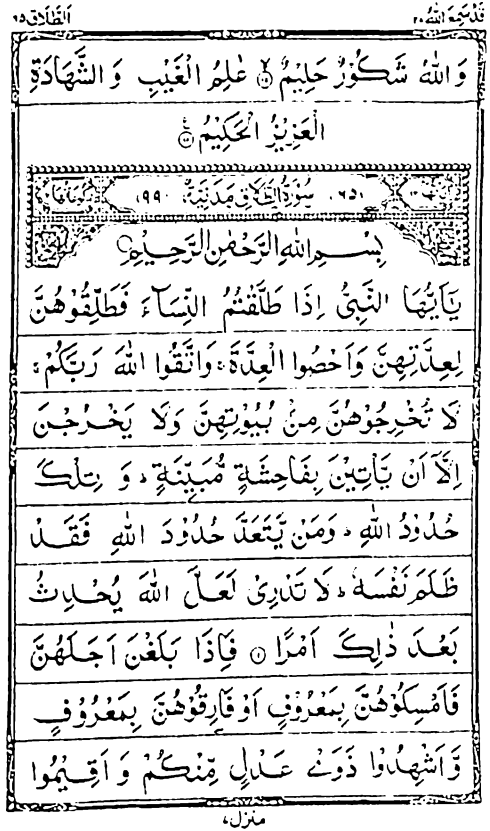 قد سمع الله ۲۸
الطلاق ۶۵
وَاللّٰهُ شَكُوْرٌ حَلِيْمٌ ۙ﴿۱۷﴾ عٰلِمُ الْغَيْبِ وَ الشَّهَادَةِ
الْعَزِيْزُ الْحَكِيْمُ ﴿۱۸﴾
(۶۵) سُوْرَةُ الطَّلَاقِ مَدَنِيَّةٌ (۹۹)
بِسْمِ اللّٰهِ الرَّحْمٰنِ الرَّحِيْمِ
يٰۤاَيُّهَا النَّبِيُّ اِذَا طَلَّقْتُمُ النِّسَآءَ فَطَلِّقُوْهُنَّ
لِعِدَّتِهِنَّ وَ اَحْصُوا الْعِدَّةَ ۚ وَاتَّقُوا اللّٰهَ رَبَّكُمْ ۚ
لَا تُخْرِجُوْهُنَّ مِنْۢ بُيُوْتِهِنَّ وَلَا يَخْرُجْنَ
اِلَّاۤ اَنْ يَّاْتِيْنَ بِفَاحِشَةٍ مُّبَيِّنَةٍ ؕ وَ تِلْكَ
حُدُوْدُ اللّٰهِ ؕ وَمَنْ يَّتَعَدَّ حُدُوْدَ اللّٰهِ فَقَدْ
ظَلَمَ نَفْسَهٗ ؕ لَا تَدْرِىْ لَعَلَّ اللّٰهَ يُحْدِثُ
بَعْدَ ذٰلِكَ اَمْرًا ﴿۱﴾ فَاِذَا بَلَغْنَ اَجَلَهُنَّ
فَاَمْسِكُوْهُنَّ بِمَعْرُوْفٍ اَوْ فَارِقُوْهُنَّ بِمَعْرُوْفٍ
وَّ اَشْهِدُوْا ذَوَىْ عَدْلٍ مِّنْكُمْ وَ اَقِيْمُوا
منزل ۷